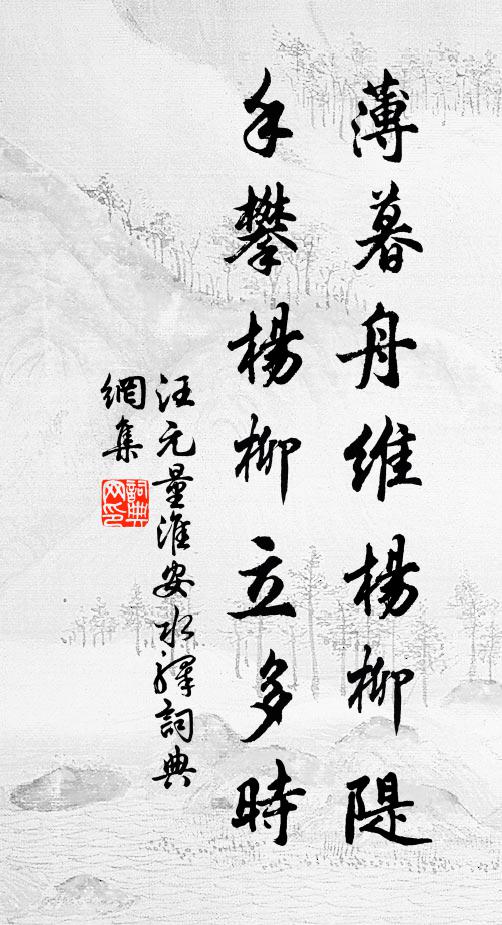 薄暮舟維楊柳隄
手攀楊柳立多時
汪元量淮安水驛詞典
網集
詞典
网印